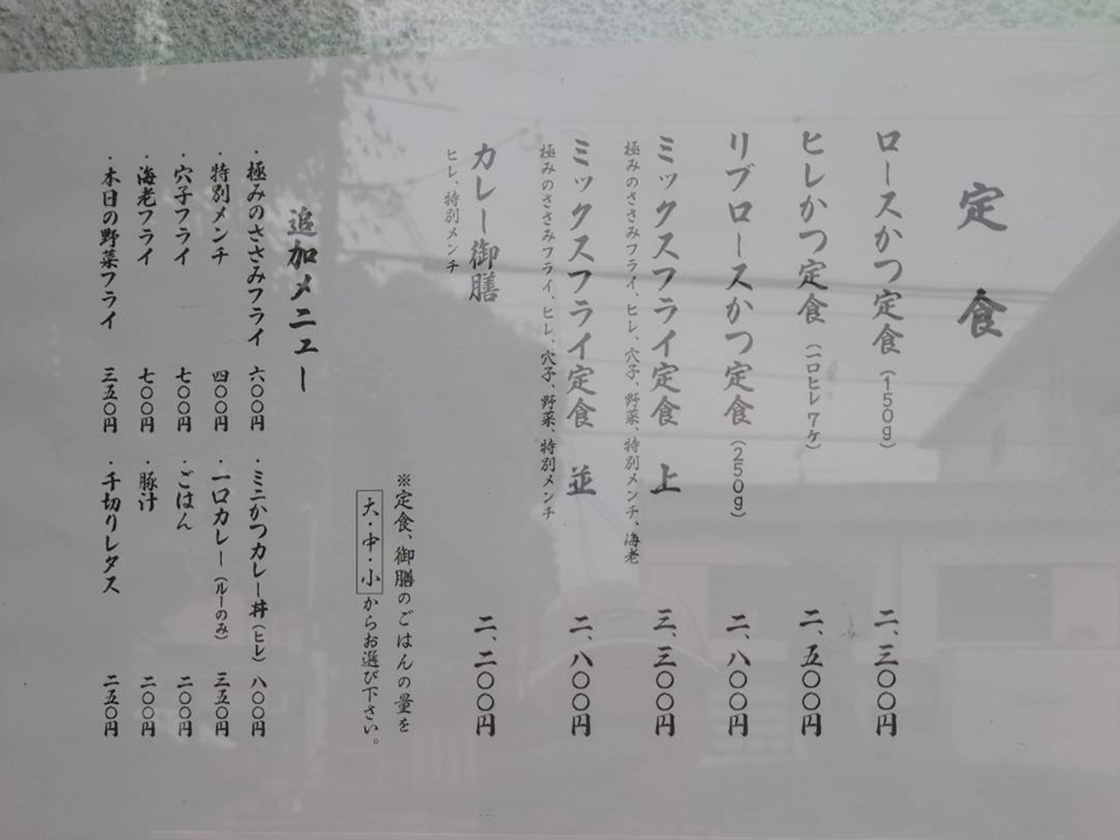 定食
ロースかつ定食（150g） 二、三〇〇円
ヒレかつ定食（一口ヒレ7ケ） 二、五〇〇円
リブロースかつ定食（250g） 二、八〇〇円
ミックスフライ定食 上 三、三〇〇円
極みのささみフライ、ヒレ、穴子、野菜、特別メンチ、海老
ミックスフライ定食 並 二、八〇〇円
極みのささみフライ、ヒレ、穴子、野菜、特別メンチ
カレー御膳 二、二〇〇円
ヒレ、特別メンチ
※定食、御膳のごはんの量を
大・中・小からお選び下さい。
追加メニュー
・極みのささみフライ 六〇〇円
・特別メンチ 四〇〇円
・穴子フライ 七〇〇円
・海老フライ 七〇〇円
・本日の野菜フライ 三五〇円
・ミニかつカレー丼（ヒレ） 八〇〇円
・一口カレー（ルーのみ） 三五〇円
・ごはん 二〇〇円
・豚汁 二〇〇円
・千切りレタス 二五〇円